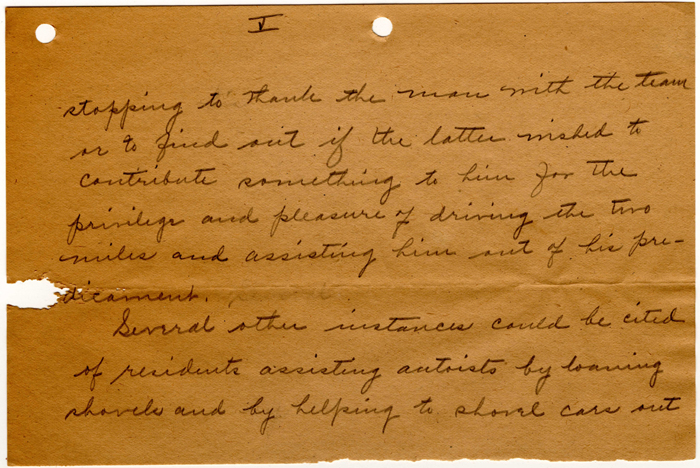 V
stopping to thank the man with the team
or to find out if the latter wished to
contribute something to him for the
privilege and pleasure of driving the two
miles and assisting him out of his pre-
dicament.
Several other instances could be cited
of residents assisting autoists by loaning
shovels and by helping to shovel cars out